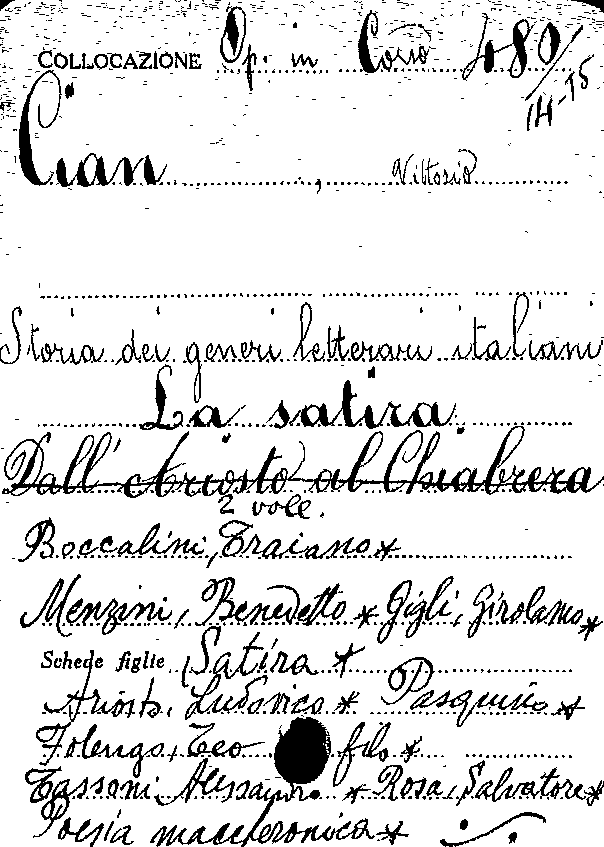 COLLOCAZIONE Op. in Corso 480/
14-15
Cian, Vittorio
Storia dei generi letterari italiani
La satira
Dall' Ariosto al Chiabrera
2 voll.
Boccalini, Traiano *
Menzini, Benedetto * Gigli, Girolamo *
Schede figlie Satira *
Ariosto, Ludovico * Pasquino *
Folengo, Teofilo *
Tassoni, Alessandro * Rosa, Salvatore *
Poesia maccheronica *